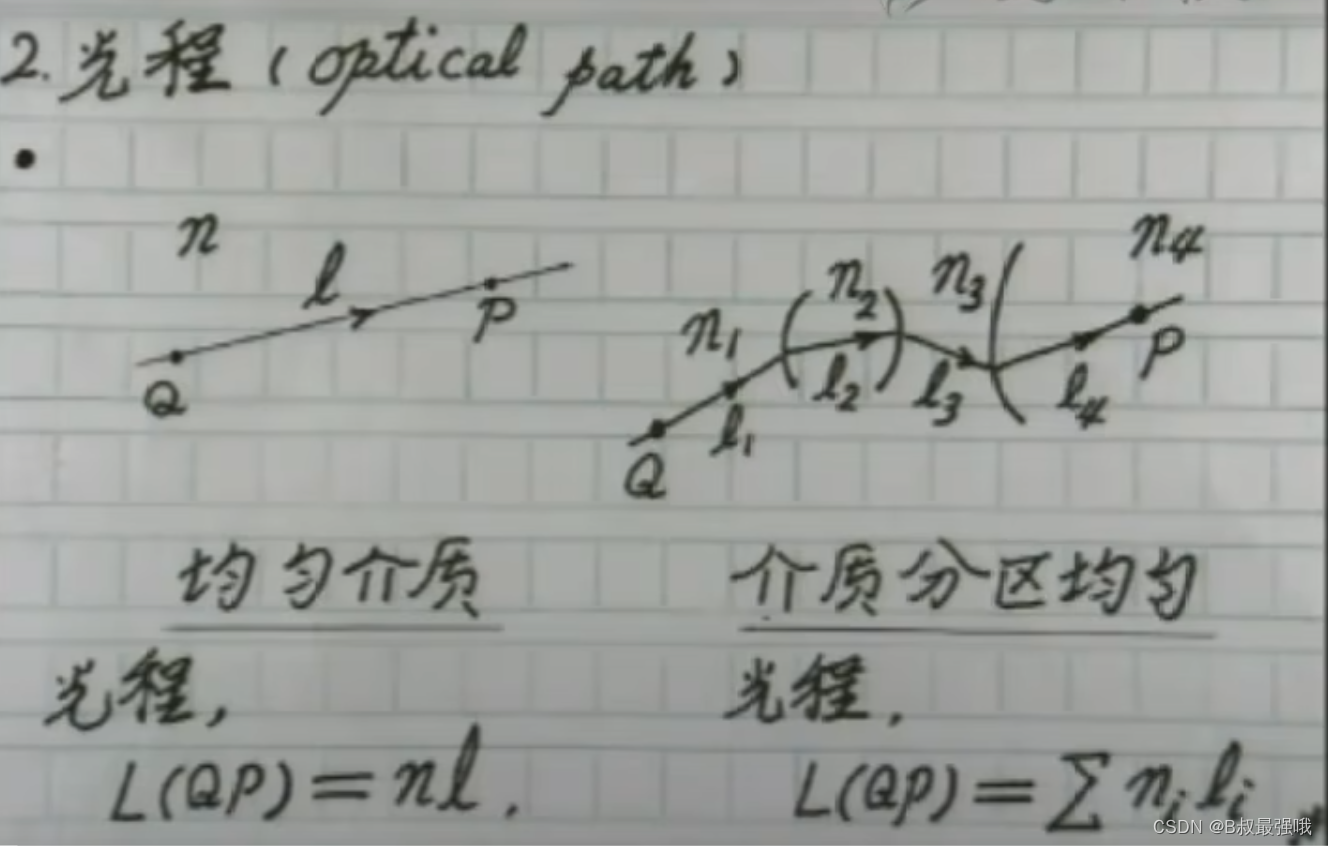 2. 光程 (optical path)
n
l
P
Q
n₁
n₂
n₃
n₄
l₁
l₂
l₃
l₄
Q
P
均匀介质
光程,
L(QP) = nl.
介质分区均匀
光程.
L(QP) = ∑ nᵢ lᵢ
CSDN @B叔最强哦